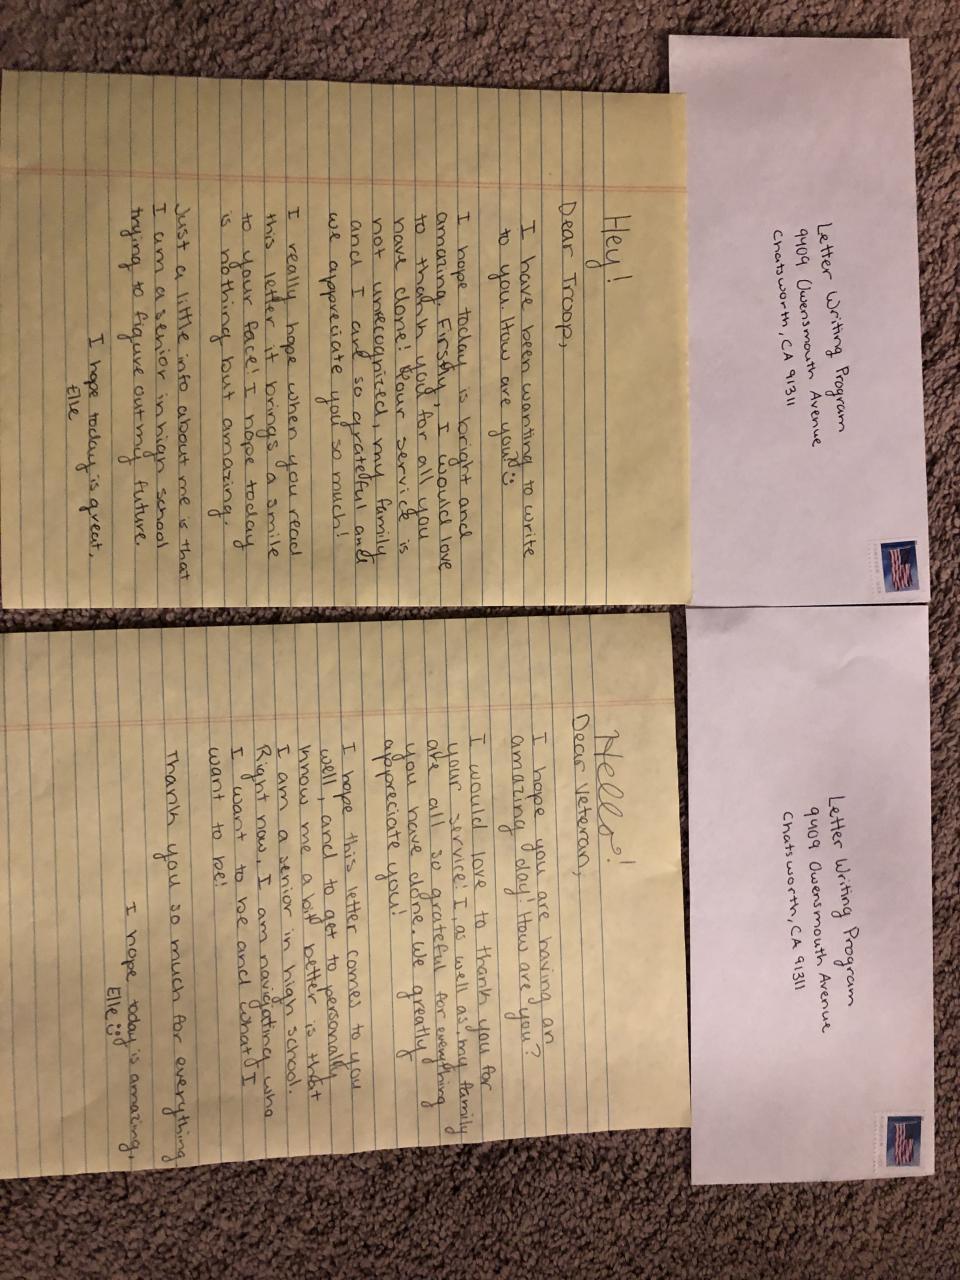 Letter Writing Program
9409 Owensmouth Avenue
Chatsworth, CA 91311
Hey!
Dear Troop,
I have been wanting to write
to you. How are you? :)
I hope today is bright and
amazing. Firstly, I would love
to thank you for all you
have done! Your service is
not unrecognized, my family
and I are so grateful and
we appreciate you so much!
I really hope when you read
this letter it brings a smile
to your face! I hope today
is nothing but amazing.
Just a little info about me is that
I am a senior in high school
trying to figure out my future.
I hope today is great,
Elle
Letter Writing Program
9409 Owensmouth Avenue
Chatsworth, CA 91311
Hello!
Dear Veteran,
I hope you are having an
amazing day! How are you?
I would love to thank you for
your service! I, as well as, my family
are all so grateful for everything
you have done. We greatly
appreciate you!
I hope this letter comes to you
well, and to get to personally
know me a bit better is that
I am a senior in high school.
Right now, I am navigating who
I want to be and what I
want to be!
Thank you so much for everything
I hope today is amazing,
Elle :)